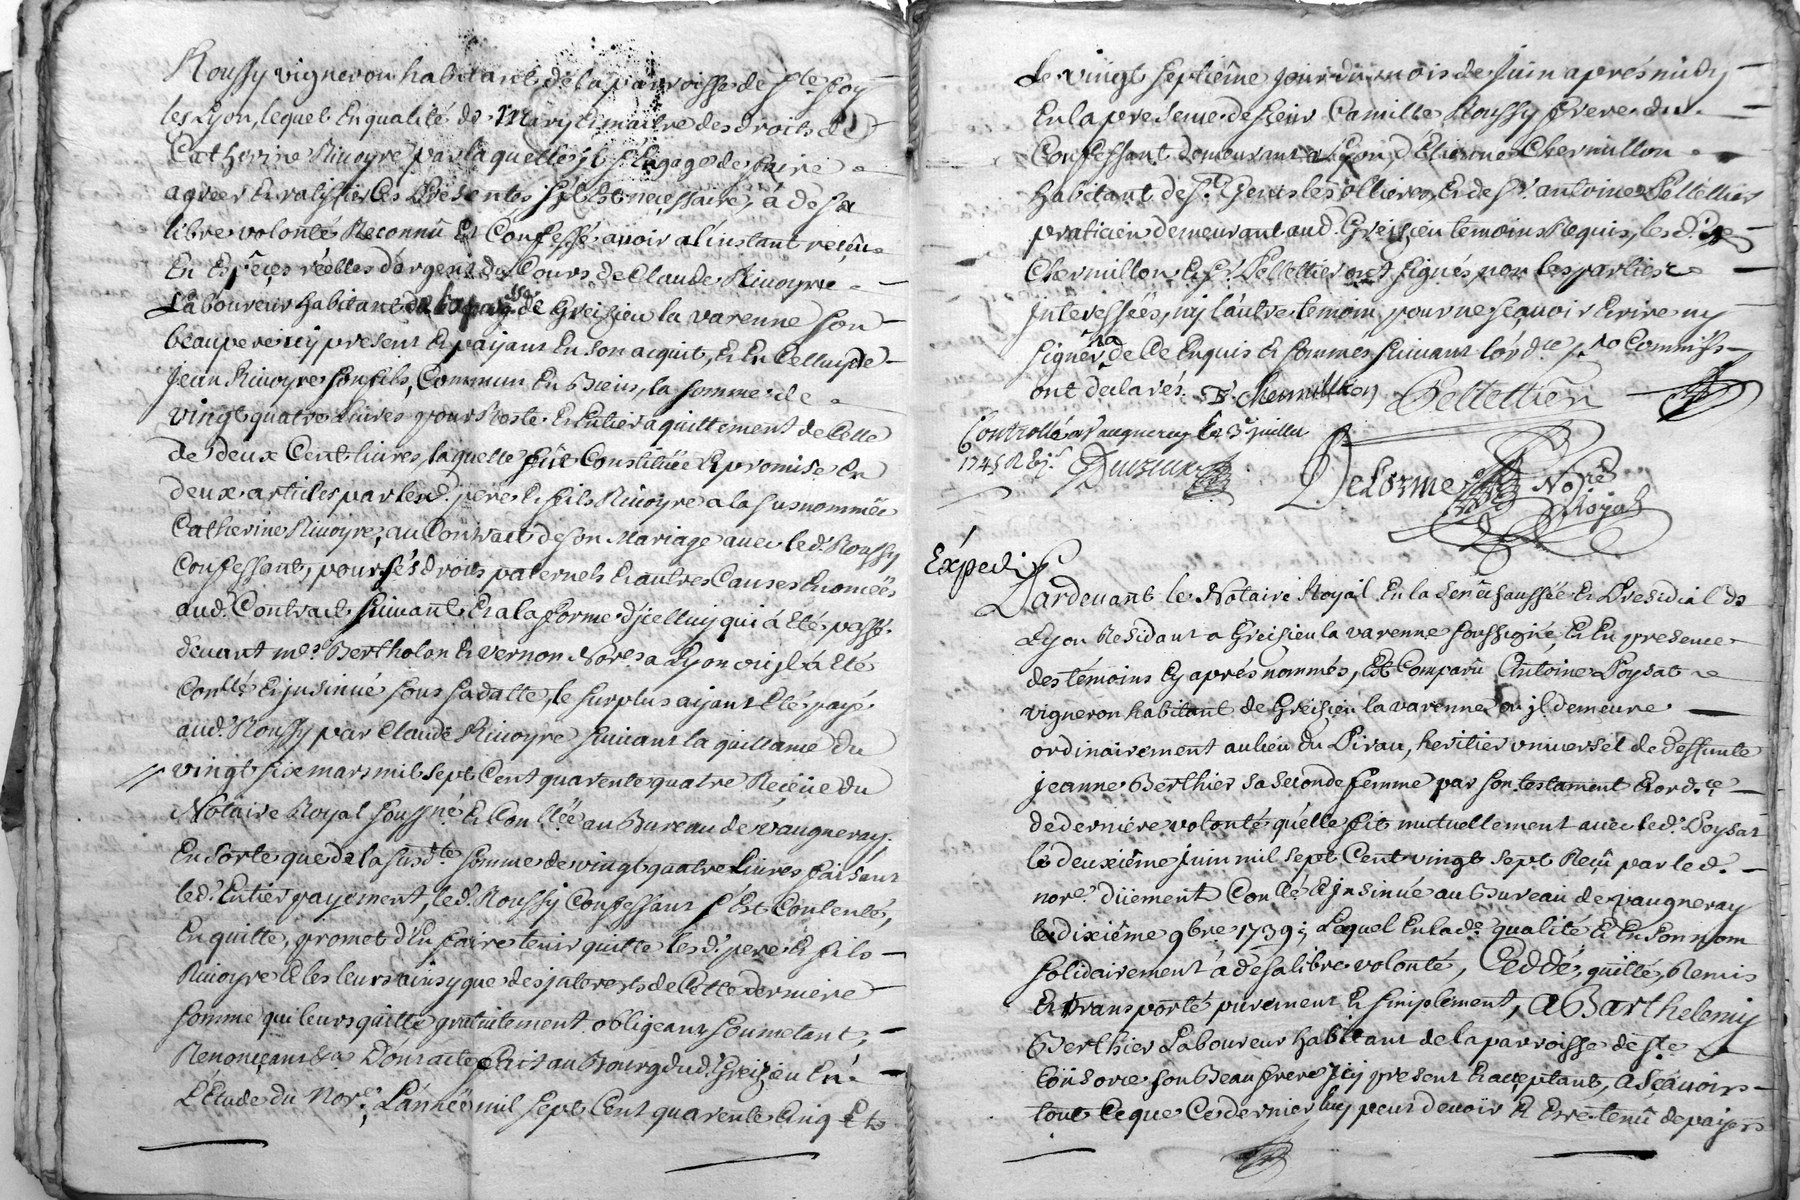 Roussy vigneron habitant de la parroisse de Ste. Foy
les Lyon, lequel en qualité de Mary et maitre des droits de
Catherine Rivoyre par laquelle il s'engage de faire
agréer et ratiffier les présentes s'il est necessaire, a de sa
libre volonté Reconnû et Confessé avoir a l'instant reçeu
En Espêces réelles d'argent du Cours, de Claude Rivoyre
Laboureur habitant de Greisieu la varenne son
beaupere icy present et payant en son acquit, et en celluy de
Jean Rivoyre son fils, Commun en Biens, la somme de
vingt quatre Livres pour Reste et Entier aquittement de Celle
de deux Cent livres, laquelle fût Constituée et promise en
deux articles par lesd. pere et fils Rivoyre a la susnommée
Catherine Rivoyre, au Contract de son Mariage avec led. Roussy
Confessant, pour sés droits paternels et autres Causes énoncées
aud. Contract suivant et a la forme d'jcelluy qui á été passé
devant mes. Bertholon et Vernon Nores. a Lyon ou jl á été
Conllé et jnsinué sous sa datte, le surplus ayant été payé
aud. Roussy par Claude Rivoyre suivant la quittance du
// vingt six mars mil sept Cent quarente quatre Reçüe du
Notaire Royal soussné et Conllée au Bureau de vaugneray,
En sorte que de la susdte somme de vingt quatre Livres faisant
led. Entier payement, led. Roussy Confessant s'Est Contenté,
En quitte, promet d'En faire tenir quitte lesd. pere et fils
Rivoyre et les leurs ainsy que des jnterests de Cette derniere
somme qui leurs quitte gratuitement obligeant soumetant,
Renonçant &a. Dont acte fait au Bourg dud. Greizieu En
l'Étude du Nore., L'année mil sept Cent quarente Cinq Et
Le vingt septiême jour du mois de Juin aprés midy
En la presence de sieur Camille Roussy frere du
Confessant demeurant a Lyon, d'Etienne Chermillon
habitant de St. Genis les ollieres, Et de Sr. antoine Pelletier
praticien demeurant aud. Greizieu temoins Requis, lesd.
Chermillon et Sr. Pelletier ont signés, non les parties
Interessées, ny l'autre temoin, pour ne sçavoir Ecrire ny
signer de Ce Enquis et sommés suivant l'ordce
ont déclarés. E. Chermillion Pelletier
Controllé a Vaugneray le 3e juillet
1745
Delorme Nore
Royal
Expedié
Pardevant le Notaire Royal En la Sénéchaussée et Presidial de
Lyon Residant a Greisieu la varenne soussigné, et En presence
des témoins Cy aprés nommés, Est Comparû Antoine Poysat
vigneron habitant de Greisieu la varenne où jl demeure
ordinairement au lieu du Pirau, heritier universel de deffunte
jeanne Berthier sa seconde femme par son testament et ordce
de derniere volonté qu'elle fit mutuellement avec led. Poysat
le deuxiême Juin mil sept Cent vingt sept Reçû par led.
nore. düement Conllé et jnsinué au Bureau de vaugneray
le dixiême 9bre 1739; Lequel En lade qualité et En son nom
solidairement á de sa libre volonté, Ceddé, quitté, Remis
Et Transporté purement et simplement, A Barthelemy
Berthier Laboureur habitant de la parroisse de Ste.
Consorce son Beau frere jcy present et acceptant, a sçavoir
tout Ce que Ce dernier luy peut devoir et Etre tenû de payer